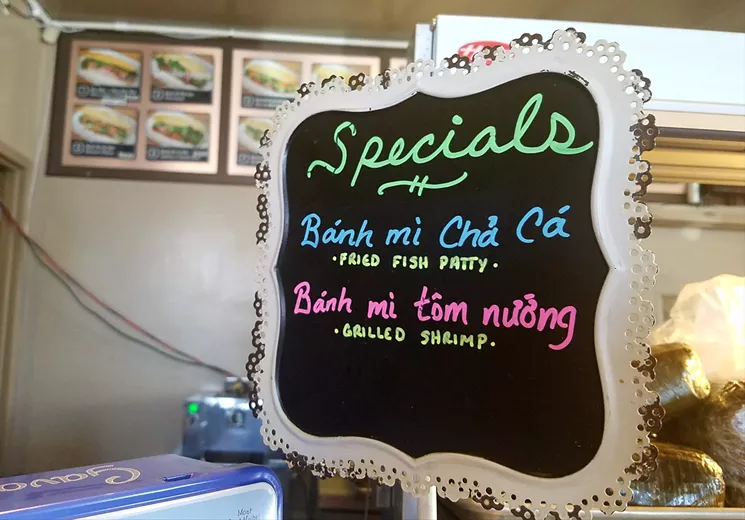 Specials
Bánh mì Chả Cá
·FRIED FISH PATTY·
Bánh mì tôm nướng
·GRILLED SHRIMP·
Most